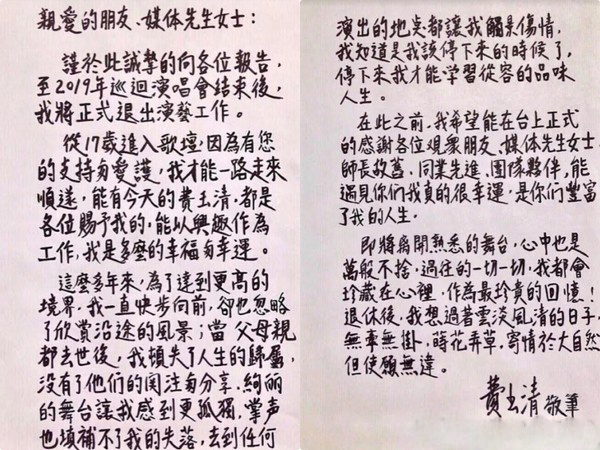 親愛的朋友、媒体先生女士：
謹於此誠摯的向各位報告，
至2019年巡迴演唱會結束後，
我將正式退出演藝工作。
從17歲進入歌壇，因為有您
的支持與愛護，我才能一路走來
順遂，能有今天的費玉清，都是
各位賜予我的，能以興趣作為
工作，我是多麼的幸福與幸運。
這麼多年來，為了達到更高的
境界，我一直快步向前，卻也忽略
了欣賞沿途的風景；當父母親
都去世後，我頓失了人生的歸屬，
沒有了他們的関注與分享，絢麗
的舞台讓我感到更孤獨，掌声
也填補不了我的失落，去到任何
演出的地点都讓我觸景傷情，
我知道是我該停下來的時候了，
停下來我才能學習從容的品味
人生。
在此之前，我希望能在台上正式
的感谢各位觀衆朋友、媒体先生女士、
師長故舊、同業先進、團隊夥伴，能
遇見你們我真的很幸運，是你們豐富
了我的人生。
即將離開熟悉的舞台，心中也是
萬般不捨，過往的一切一切，我都會
珍藏在心裡，作為最珍貴的回憶！
退休後，我想過著雲淡風清的日子，
無牽無掛，蒔花弄草，寄情於大自然
但使願無違。
費玉清 敬筆